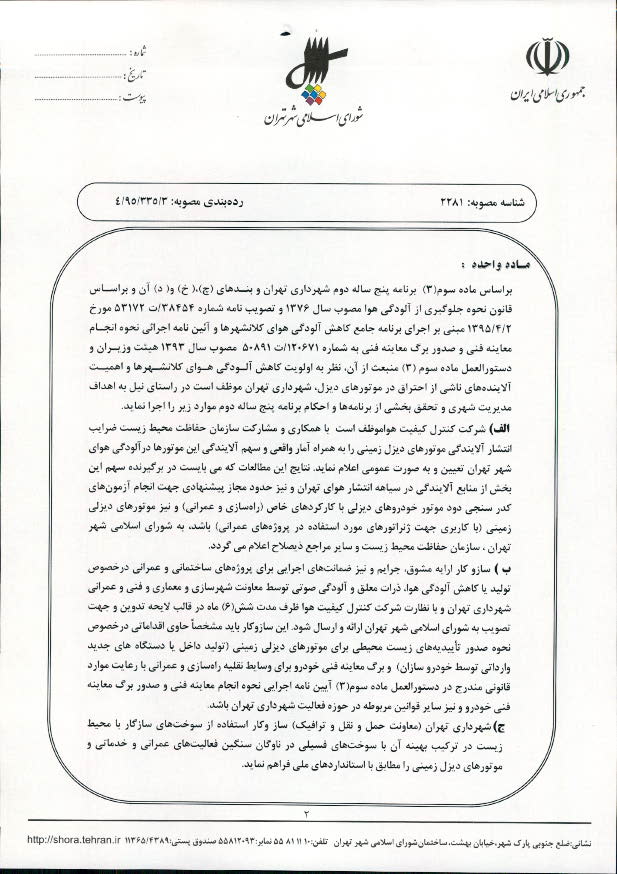 جمهوری اسلامی ایران
شورای اسلامی شهر تهران
شماره :
تاریخ :
پیوست :
شناسه مصوبه: ۲۲۸۱
رده‌بندی مصوبه: ۴/۹۵/۳۳۵/۳
ماده واحده :
براساس ماده سوم(۳) برنامه پنج ساله دوم شهرداری تهران و بندهای (چ)،( خ) و( د) آن و براساس
قانون نحوه جلوگیری از آلودگی هوا مصوب سال ۱۳۷۶ و تصویب نامه شماره ۳۸۴۵۴/ت ۵۳۱۷۲ مورخ
۱۳۹۵/۴/۲ مبنی بر اجرای برنامه جامع کاهش آلودگی هوای کلانشهرها و آئین نامه اجرائی نحوه انجام
معاینه فنی و صدور برگ معاینه فنی به شماره ۱۲۰۶۷۱/ت ۵۰۸۹۱ مصوب سال ۱۳۹۳ هیئت وزیران و
دستورالعمل ماده سوم (۳) منبعث از آن، نظر به اولویت کاهش آلودگی هوای کلانشهرها و اهمیت
آلاینده‌های ناشی از احتراق در موتورهای دیزل، شهرداری تهران موظف است در راستای نیل به اهداف
مدیریت شهری و تحقق بخشی از برنامه‌ها و احکام برنامه پنج ساله دوم موارد زیر را اجرا نماید.
الف) شرکت کنترل کیفیت هواموظف است با همکاری و مشارکت سازمان حفاظت محیط زیست ضرایب
انتشار آلایندگی موتورهای دیزل زمینی را به همراه آمار واقعی و سهم آلایندگی این موتورها درآلودگی هوای
شهر تهران تعیین و به صورت عمومی اعلام نماید. نتایج این مطالعات که می بایست در برگیرنده سهم این
بخش از منابع آلایندگی در سیاهه انتشار هوای تهران و نیز حدود مجاز پیشنهادی جهت انجام آزمون‌های
کدر سنجی دود موتور خودروهای دیزلی با کارکردهای خاص (راه‌سازی و عمرانی) و نیز موتورهای دیزلی
زمینی (با کاربری جهت ژنراتورهای مورد استفاده در پروژه‌های عمرانی) باشد، به شورای اسلامی شهر
تهران ، سازمان حفاظت محیط زیست و سایر مراجع ذیصلاح اعلام می گردد.
ب ) سازو کار ارایه مشوق، جرایم و نیز ضمانت‌های اجرایی برای پروژه‌های ساختمانی و عمرانی درخصوص
تولید یا کاهش آلودگی هوا، ذرات معلق و آلودگی صوتی توسط معاونت شهرسازی و معماری و فنی و عمرانی
شهرداری تهران و با نظارت شرکت کنترل کیفیت هوا ظرف مدت شش(۶) ماه در قالب لایحه تدوین و جهت
تصویب به شورای اسلامی شهر تهران ارائه و ارسال شود. این سازوکار باید مشخصاً حاوی اقداماتی درخصوص
نحوه صدور تأییدیه‌های زیست محیطی برای موتورهای دیزلی زمینی (تولید داخل یا دستگاه های جدید
وارداتی توسط خودرو سازان) و برگ معاینه فنی خودرو برای وسایط نقلیه راه‌سازی و عمرانی با رعایت موارد
قانونی مندرج در دستورالعمل ماده سوم(۳) آیین نامه اجرایی نحوه انجام معاینه فنی و صدور برگ معاینه
فنی خودرو و نیز سایر قوانین مربوطه در حوزه فعالیت شهرداری تهران باشد.
ج) شهرداری تهران (معاونت حمل و نقل و ترافیک) ساز وکار استفاده از سوخت‌های سازگار با محیط
زیست در ترکیب بهینه آن با سوخت‌های فسیلی در ناوگان سنگین فعالیت‌های عمرانی و خدماتی و
موتورهای دیزل زمینی را مطابق با استانداردهای ملی فراهم نماید.
۲
نشانی:ضلع جنوبی پارک شهر،خیابان بهشت، ساختمان‌شورای اسلامی شهر تهران تلفن:۱۰ ۱۱ ۸۱ ۵۵ نمابر:۵۵۸۱۲۰۹۳ صندوق پستی:۱۱۳۶۵/۴۳۸۹ http://shora.tehran.ir